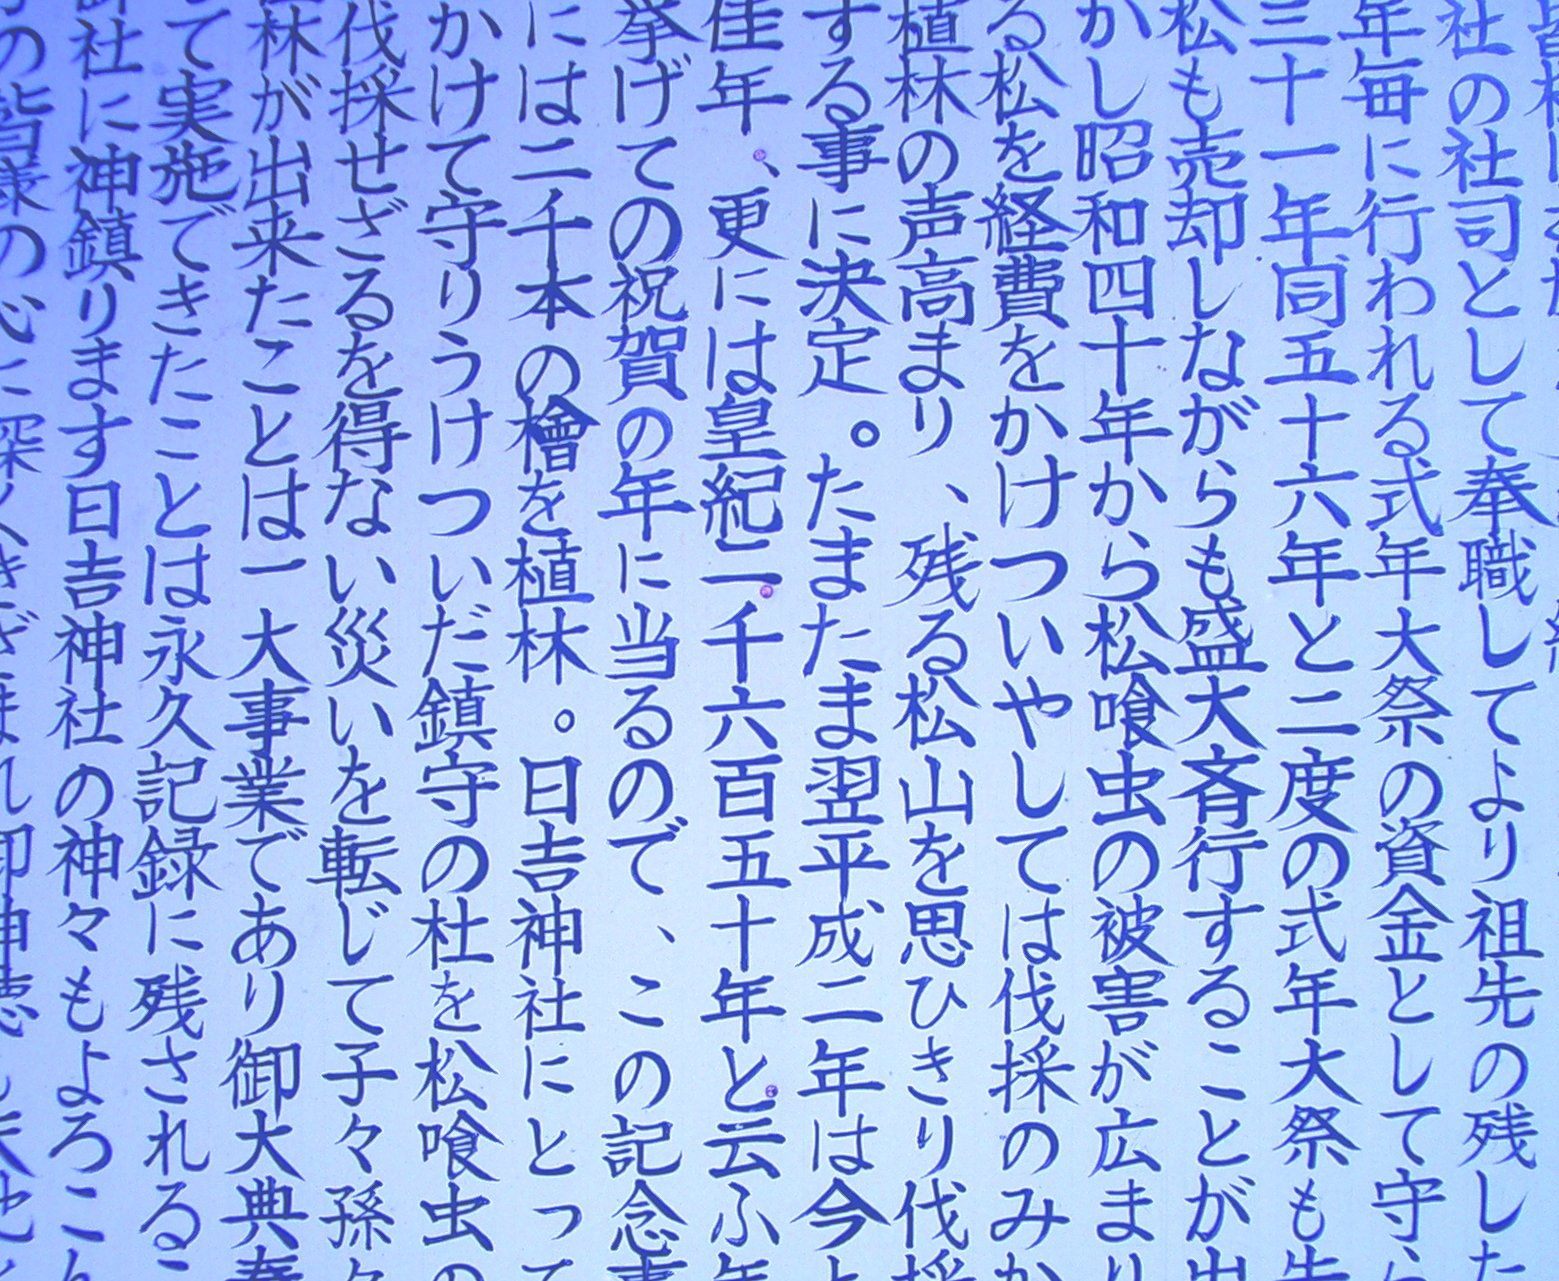 社の社司として奉職してより祖先の残した
年毎に行われる式年大祭の資金として守
三十一年同五十六年と二度の式年大祭も
松も売却しながらも盛大斉行することが
かし昭和四十年から松喰虫の被害が広ま
る松を経費をかけついやしては伐採のみか
植林の声高まり、残る松山を思ひきり伐採
する事に決定。たまたま翌平成二年は今と
佳年、更には皇紀二千六百五十年と云ふ年
挙げての祝賀の年に当るので、この記念事
には二千本の檜を植林。日吉神社にとって
かけて守りうけついだ鎮守の杜を松喰虫の
伐採せざるを得ない災いを転じて子々孫々
林が出来たことは一大事業であり御大典奉
て実施できたことは永久記録に残されるこ
社に神鎮ります日吉神社の神々もよろこん
の皆様の心に深く